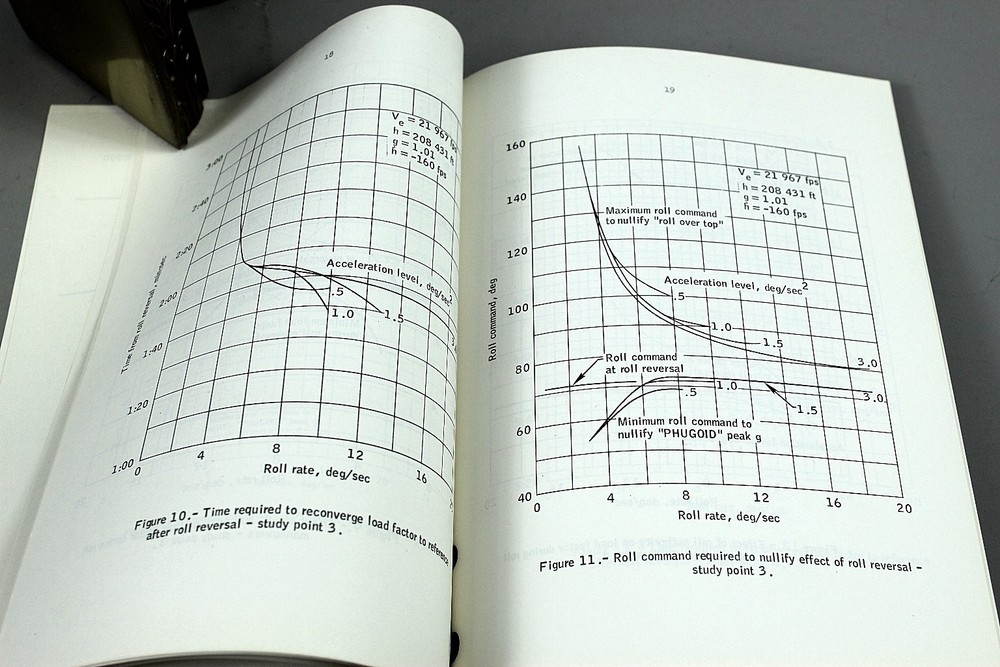 18
V_e = 21 967 fps
h = 208 431 ft
g = 1.01
ḣ = -160 fps
3:00
2:40
2:20
2:00
1:40
1:20
1:00
Time from roll reversal,
Acceleration level, deg/sec²
.5
1.0
1.5
3.
0
4
8
12
16
Roll rate, deg/sec
Figure 10.- Time required to reconverge load factor to reference
after roll reversal - study point 3.
19
160
140
120
100
80
60
40
Roll command, deg
V_e = 21 967 fps
h = 208 431 ft
g = 1.01
ḣ = -160 fps
Maximum roll command
to nullify "roll over top"
Acceleration level, deg/sec²
.5
1.0
1.5
3.0
Roll command
at roll reversal
1.0
.5
3.0
1.5
Minimum roll command to
nullify "PHUGOID" peak g
0
4
8
12
16
20
Roll rate, deg/sec
Figure 11.- Roll command required to nullify effect of roll reversal -
study point 3.